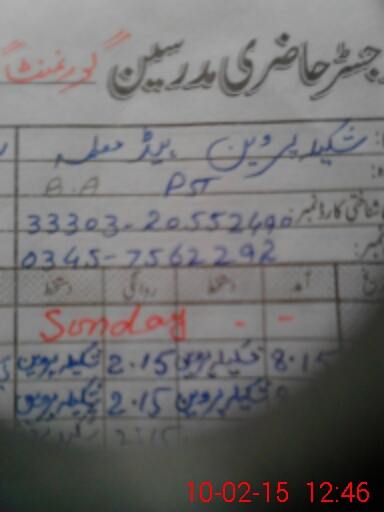 رجسٹر حاضری مدرسین گورنمنٹ
شکیلہ پروین ہیڈ معلمہ
B.A PST
شناختی کارڈ نمبر: 33303-2055249
0345-7562292
آمد دستخط روانگی دستخط
Sunday - -
8.15 شکیلہ پروین 2.15 شکیلہ پروین
شکیلہ پروین 2.15 شکیلہ پروین
2:15
10-02-15 12:46